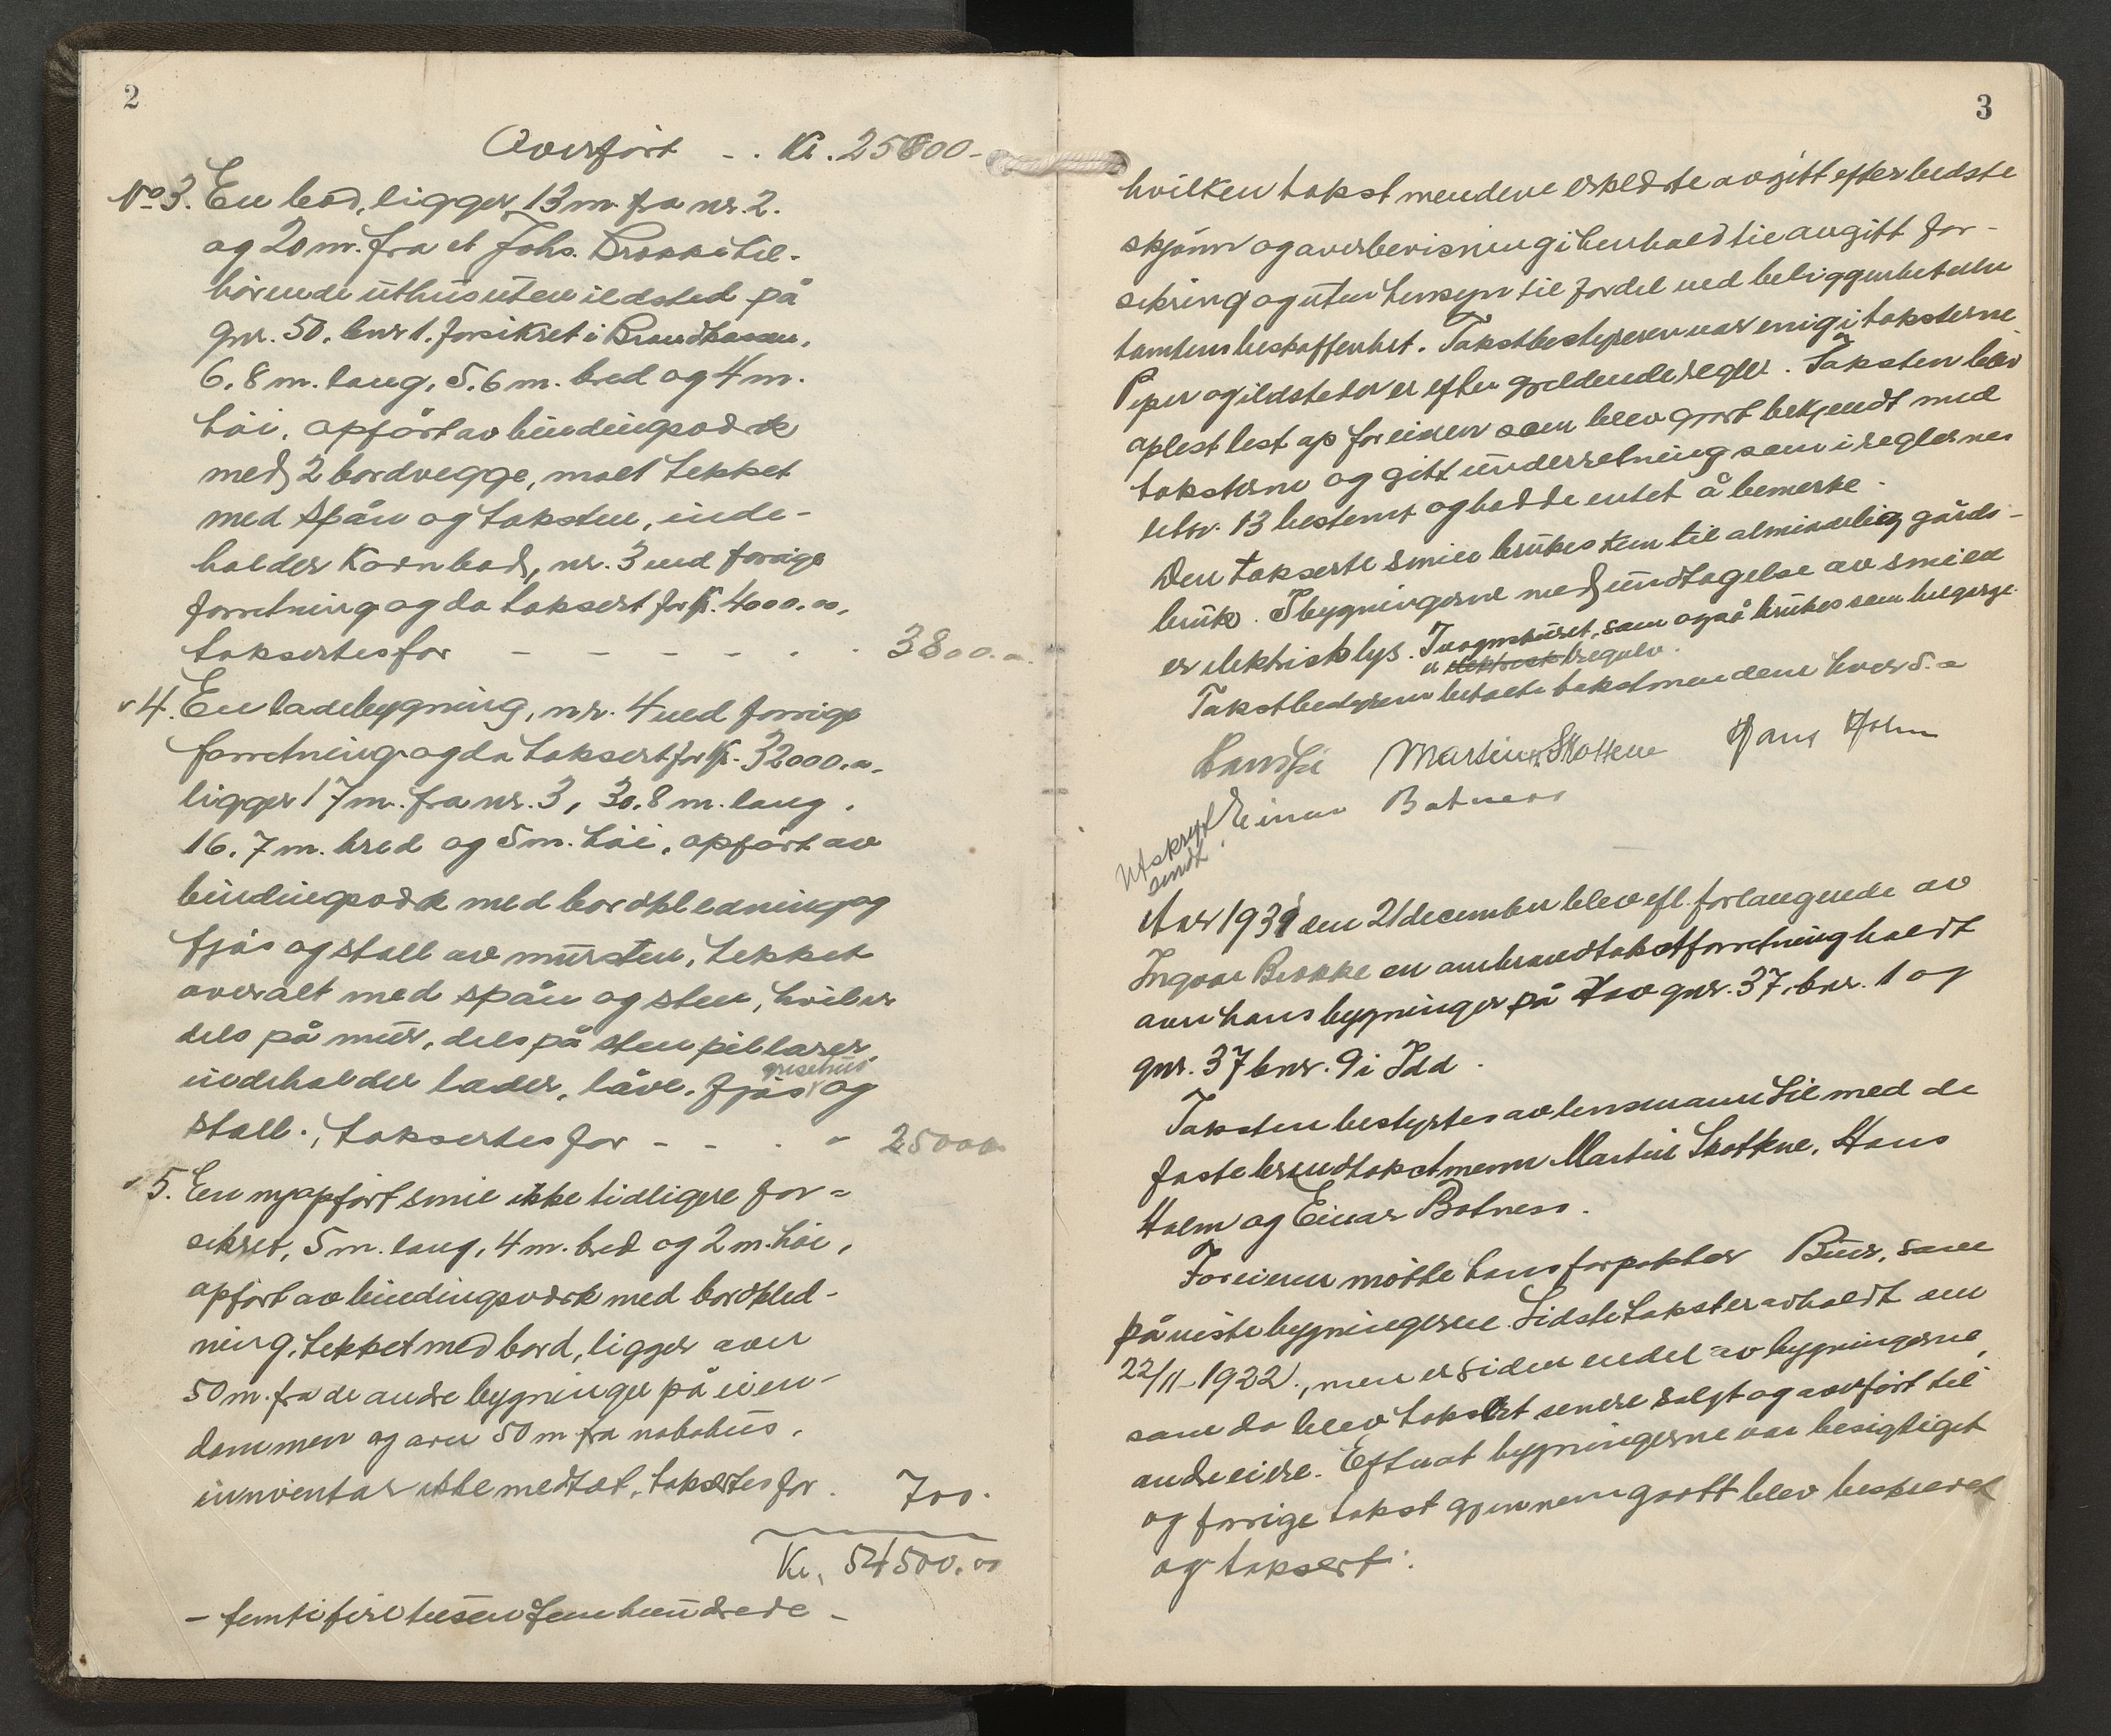 2
Overført - . Kr. 25000-
No 3. En bod, ligger 13 m. fra nr. 2.
og 20 m. fra et Johs. Brokke til-
hørende uthus uten ildsted på
gnr. 50. bnr 1. forsikret i Brandkassen,
6.8 m. lang, 5.6 m. bred og 4 m.
høi, opført av bindingsverk
med 2 bordvegge, malt tekket
med spån og taksten, inde-
holder Kornbod, nr. 3 ved forrige
forretning og da taksert for kr. 4000.00,
taksertes for - - - - . . 3800.00
" 4. En ladebygning, nr. 4 ved forrige
forretning og da taksert for kr. 32000.00.
ligger 17 m. fra nr. 3, 30.8 m. lang,
16.7 m. bred og 5 m. høi, opført av
bindingsverk med bordkledning og
fjøs og stall av mursten, tekket
overalt med spån og sten, hviler
dels på mur, dels på sten pillarer,
grisehus
indeholder lader, låve, fjøs og
stall., taksertes for - - . " 25000
" 5. En nyopført smie ikke tidligere for-
sikret, 5 m. lang, 4 m. bred og 2 m. høi,
opført av bindingsverk med bordkled-
ning, tekket med bord, ligger over
50 m. fra de andre bygninger på eien-
dommen og over 50 m fra nabohus,
innventar ikke medtat, taksertes for . 700.
Kr. 54500.00
- femtifiretusenfemhundrede -
3
hvilken takst mendene erklærte avgitt efter bedste
skjønn og overbevisning i henhold til avgitt for-
sikring og uten hensyn til fordel ved beliggenhet eller
tomtens beskaffenhet. Takstbestyreren var enig i taksterne.
Piper og ildsteder er efter gjeldende regler. Taksten blev
oplest lest op for eieren som blev gjort bekjendt med
taksterne og gitt underretning som i reglernes
litr. 13 bestemt og hadde intet å bemerke.
Den takserte smie brukes kun til almindelig gårds-
bruk. I bygningerne med undtagelse av smien
er elektrisk lys. I vognskuret, som også brukes som bilgarage
er elektrisk tregulv.
Takstbestyreren betalte takstmendene hver 5.00
Martin Skottene Hans Holm
Einar Botness
Utskrift
sendt.
Aar 1931 den 21 december blev efl. forlangende av
Ingvar Brokke en ombrandtakstforretning holdt
over hans bygninger på gnr. 37, bnr. 1 og
gnr. 37 bnr. 9 i Idd.
Taksten bestyrtes av lensmann Lie med de
faste brandtakstmenn Martin Skottene, Hans
Holm og Einar Botness.
For eieren møtte hans forpakter Buer, som
påviste bygningerne. Sidste takst er avholdt den
22/11-1922., men er siden endel av bygningerne,
som da blev taksert senere solgt og overført til
andre eiere. Efterat bygningerne var besigtiget
og forrige takst gjennemgaatt blev beskrevet
og taksert: